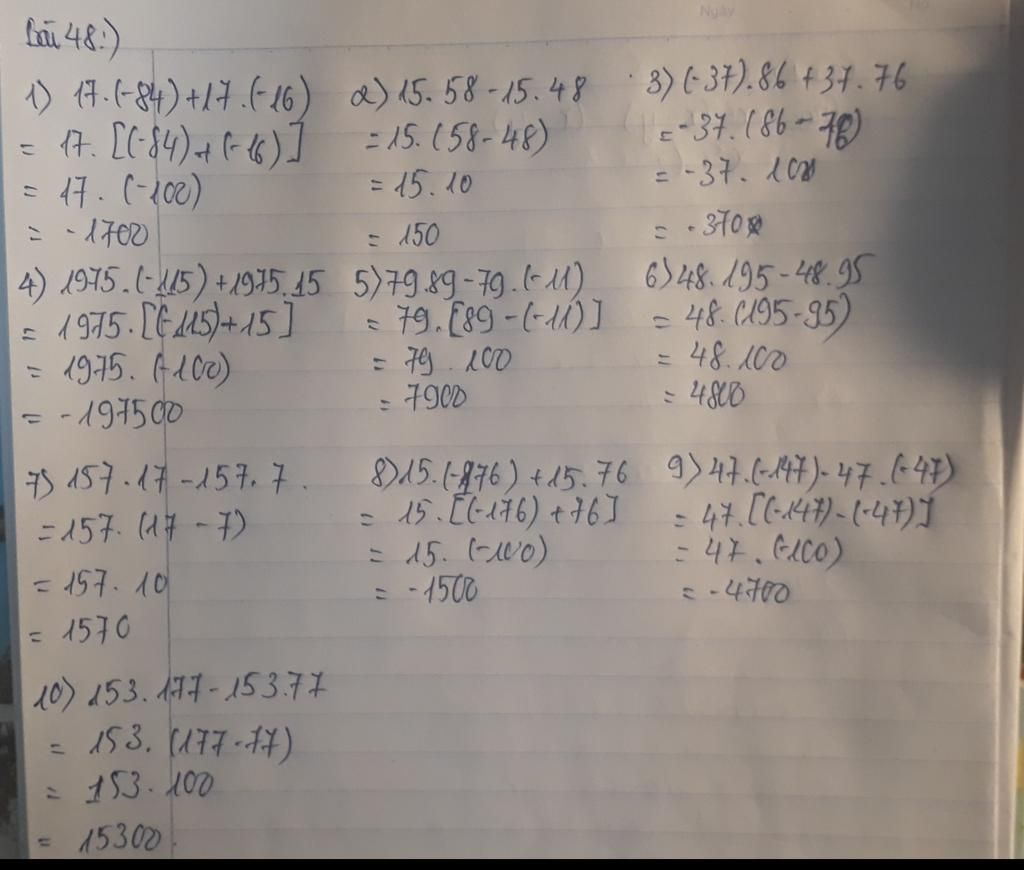 Ngày
No
Bài 48:)
1) 17.(-84)+17.(-16)
= 17. [(-84)+(-16)]
= 17. (-100)
= -1700
2) 15.58-15.48
=15.(58-48)
= 15.10
= 150
3) (-37).86+37.76
=-37.(86-76)
= -37. 10
= -370
4) 1975.(-115)+1975.15
= 1975.[(-115)+15]
= 1975. (-100)
= -197500
5) 79.89-79.(-11)
= 79.[89-(-11)]
= 79 . 100
= 7900
6) 48.195-48.95
= 48.(195-95)
= 48.100
= 4800
7) 157.17-157.7.
=157. (17-7)
= 157. 10
= 1570
8) 15.(-176)+15.76
= 15.[(-176)+76]
= 15. (-100)
= -1500
9) 47.(-147)-47.(-47)
= 47.[(-147)-(-47)]
= 47 . (-100)
= -4700
10) 153.177-153.77
= 153. (177-77)
= 153. 100
= 15300.